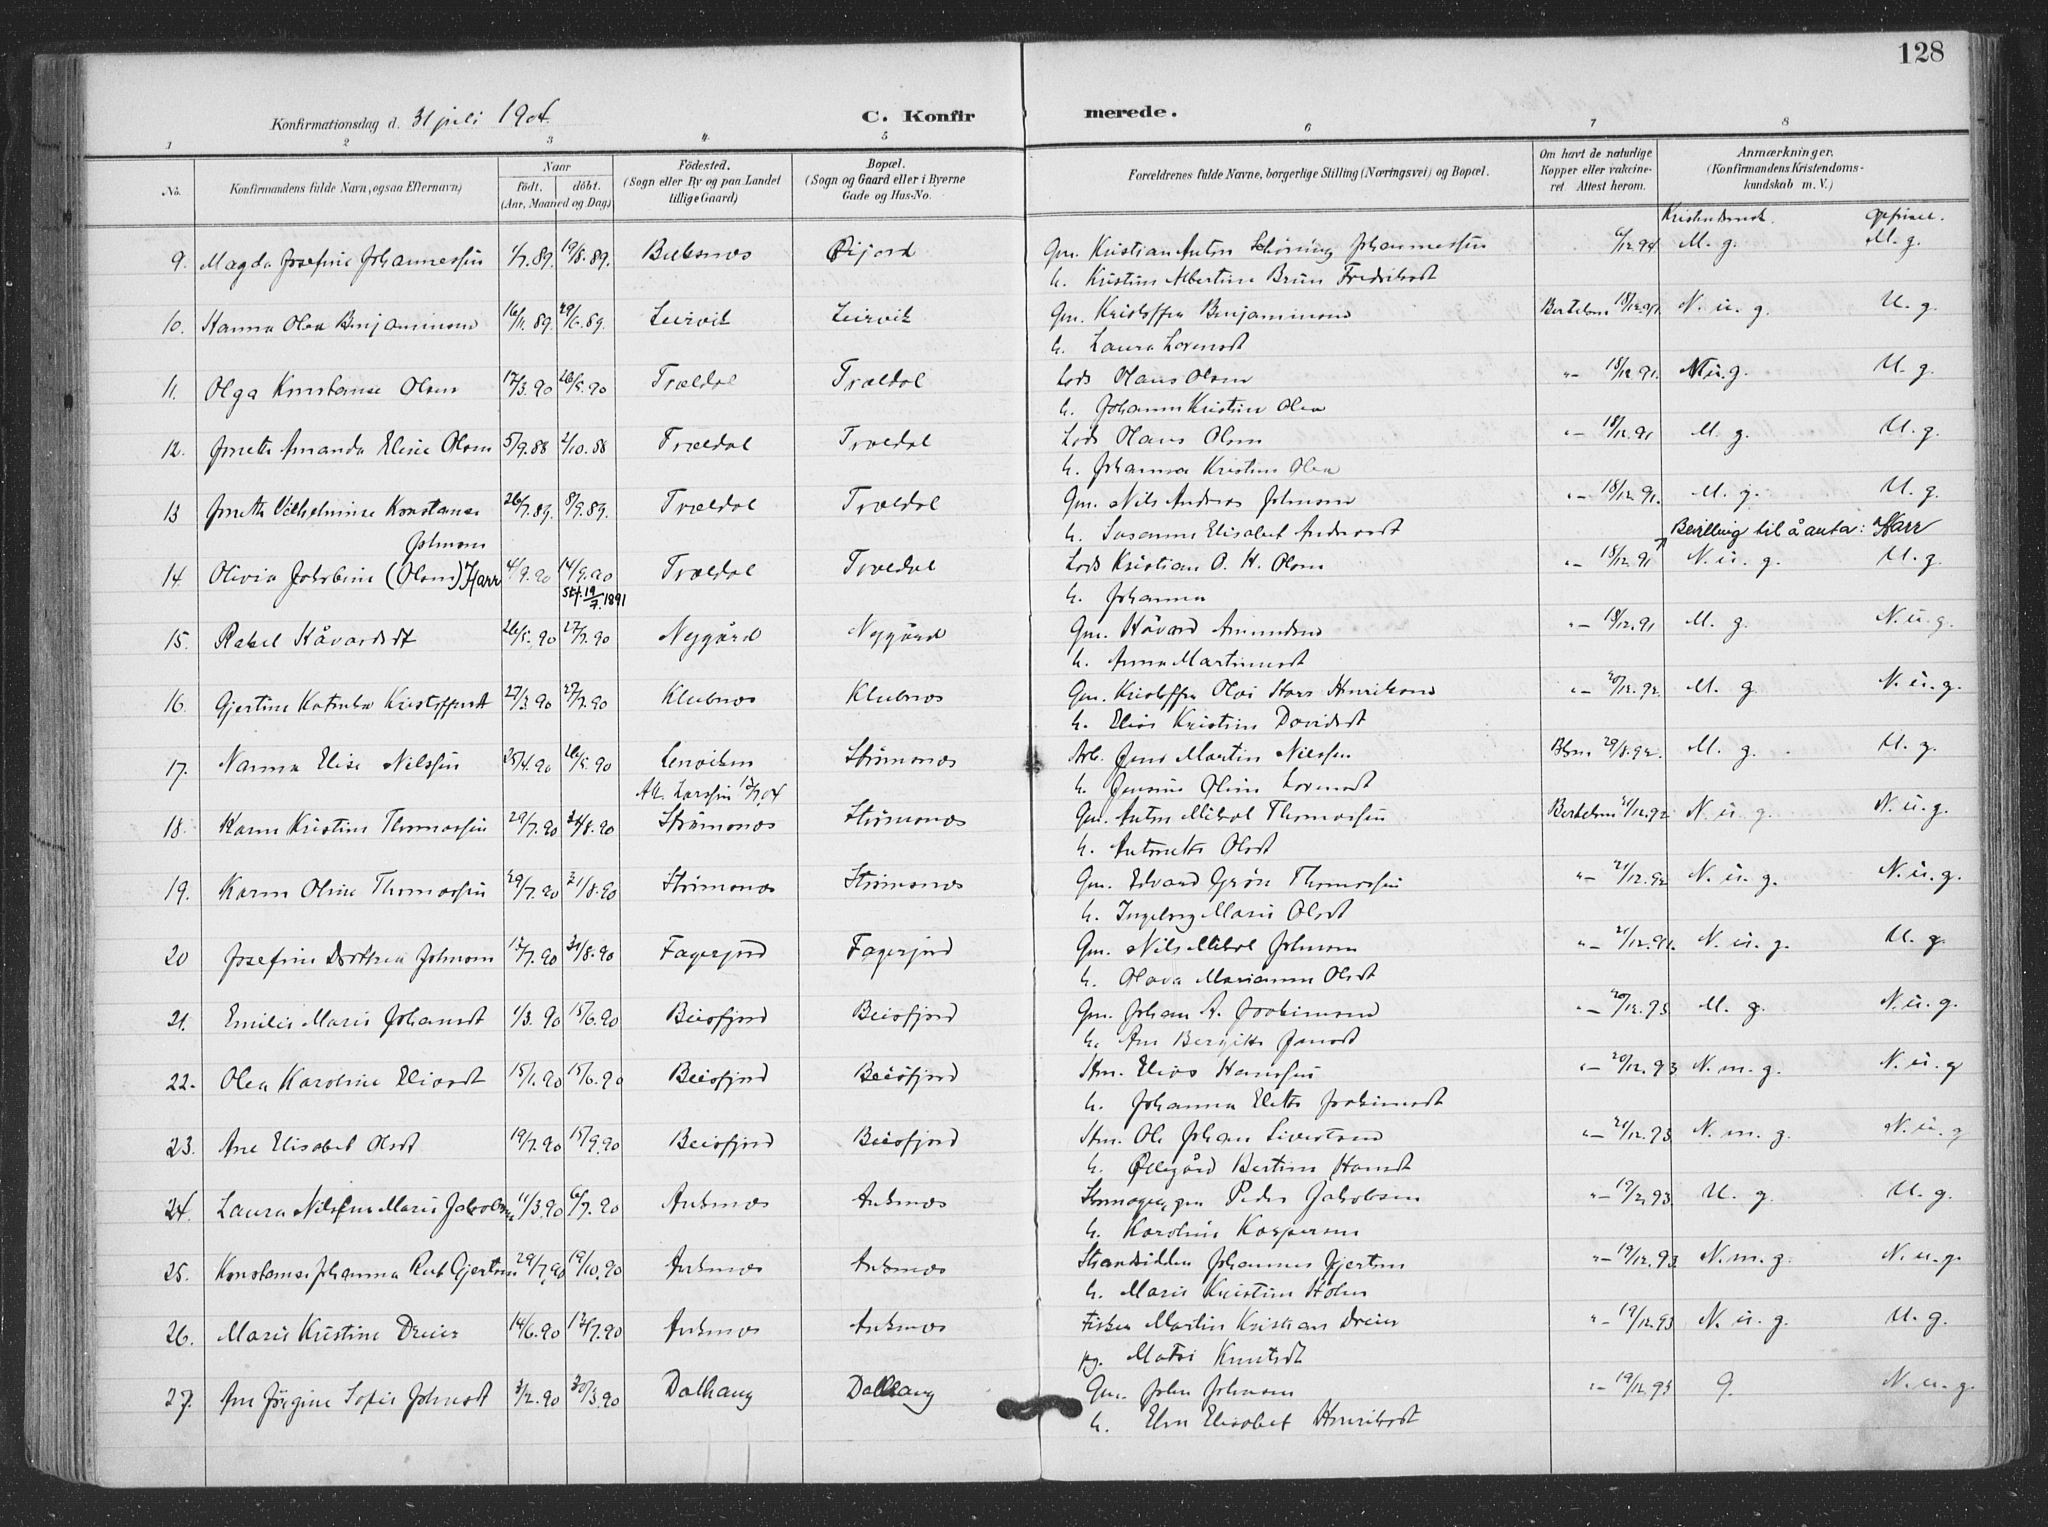 128
Konfirmationsdag d. 31 juli 1904. C. Konfirmerede.
1 2 3 4. 5 6 7 8
No. Konfirmandens fulde Navn, ogsaa Efternavn) Naar födt. döbt. (Aar, Maaned og Dag) Födested. (Sogn eller By og paa Landet tillige Gaard) Bopæl. (Sogn og Gaard eller i Byerne Gade og Hus-No. Forældrenes fulde Navne, borgerlige Stilling (Næringsvei) og Bopæl. Om havt de naturlige Kopper eller vakcineret. Attest herom. Anmærkninger. (Konfirmandens Kristendomskundskab m. V.)
9. Magda Josefine Johannessen 1/7.89. 19/8.89. Gm. Kristian Anton Schöning Johannessen 6/12.94 M. g. M. g.
h. Kristine Albertine Brun Fredriksdt
10. Hanna Olea Benjaminsen Leirvik Leirvik Gm. Kristoffer Benjaminsen Bertelsen N. u. g. U. g.
h. Laura Lorensdt
11. Olga Konstanse Olsen 17/3.90 26/5.90 Trældal Trældal Lods Hans Olsen "– 18/12.91. N. u. g. U. g.
h. Johanna Kristine Olea
12. Anette Amanda Elise Olsen 5/9.88 2/10.88 Trældal Trældal Lods Hans Olsen "– 18/12.91 M. g. U. g.
h. Johanna Kristine Olea
13 Anette Vilhelmine Konstanse 26/7.89. 8/9.89. Trældal Trældal Gm. Nils Andreas Johnsen "– 18/12.91. M. g. U. g.
Johnsen h. Susanna Elisabet Andersdt Bevilling til å anta: Harr
14. Olivia Jakobine (Olsen) Harr 4/9.90 14/9.90 Trældal Trældal Lods Kristian O. H. Olsen "– 18/12.91 N. u. g. U. g.
stf. 19/7.1891 h. Johanna
15. Rakel Håvardsdt 26/5.90 27/7.90 Nygård Nygård Gm. Håvard Amundsen "– 18/12.91 M. g. N. u. g.
h. Anna Martinsdt
16. Gjertine Katinka Kristoffersdt 27/3.90 27/7.90 Klubnes Klubnes "– 20/12.92. M. g. N. u. g.
h. Elise Kristine Davidsdt
17. Nanna Elise Nilssen 25/4.90 26/5.90 Lenviken Strömsnes Arb. Jens Martin Nilssen 29/8.92. M. g. U. g.
Att. Larssen 17/7.04 h. Jensine Oline Lorensdt
18. Karen Kristine Thomassen 29/7.90 24/8.90 Strömsnes Strömsnes Gm. Anton Mikal Thomassen Bertelsen 21/12.92. N. u. g. N. u. g.
h. Antonette Olsdt
19. Karen Oline Thomassen 29/7.90 31/8.90 Strömsnes Strömsnes Gm. Edvard Grön Thomassen "– 21/12.92 N. u. g. N. u. g.
h. Ingeborg Marie Olsdt
20 Josefine Dorthea Johnsen 17/7.90 31/8.90 Fagerjord Fagerjord Gm. Nils Mikal Johnsen N. u. g. U. g.
h. Olava Marianna Olsdt
21. Emilie Marie Johansdt 1/3.90 15/6.90 Beisfjord Beisfjord Gm. Johan A. Joakimsen "– 20/12.93 M. g. N. u. g.
h. Ane Bergitte Jonsdt
22. Olea Karoline Eliasdt 15/1.90 15/6.90 Beisfjord Beisfjord Stm. Elias Hanssen "– 20/12.93 N. m. g. N. u. g
h. Johanna Elette Joakimsdt
23. Ane Elisabet Olsdt 19/7.90 15/9.90 Beisfjord Beisfjord Stm. Ole Johan Sivertsen "– 21/12.93 N. m. g. N. u. g
h. Øllegård Bertine Hansdt
24. Laura Nilsine Marie Jakobsen 11/3.90 6/7.90 Ankenes Ankenes Peder Jakobsen "– 19/12.93. U. g. U. g.
h. Karoline Kaspersen
25. Konstanse Johanna Rut Gjertsen 29/7.90 19/10.90 Ankenes Ankenes Strandsidder Johannes Gjertsen "– 19/12.93. N. m. g. N. u. g.
h. Marie Kristine Holm
26. Marie Kristine Dreier 14/6.90 13/7.90 Ankenes Ankenes Fisker Martin Kristian Dreier "– 19/12.93 N. u. g. U. g.
pg. Knutsdt
27. Ane Jörgine Sofie Johnsdt 3/2.90 30/3.90 Dalhaug Dalhaug Gm. John Johnsen "– 19/12.93 g. N. u. g.
h. Elen Elisabet Henriksdt